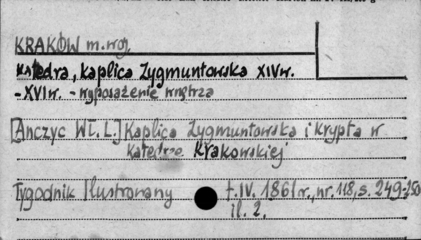 KRAKÓW m.woj.
Katedra, kaplica Zygmuntowska XIV w.
-XVI w. - wyposażenie wnętrza
[Anczyc Wł. L.] Kaplica Zygmuntowska i Krypta w
Katedrze Krakowskiej
Tygodnik Ilustrowany t. IV. 1861 r., nr. 118, s. 249-250
il. 2.